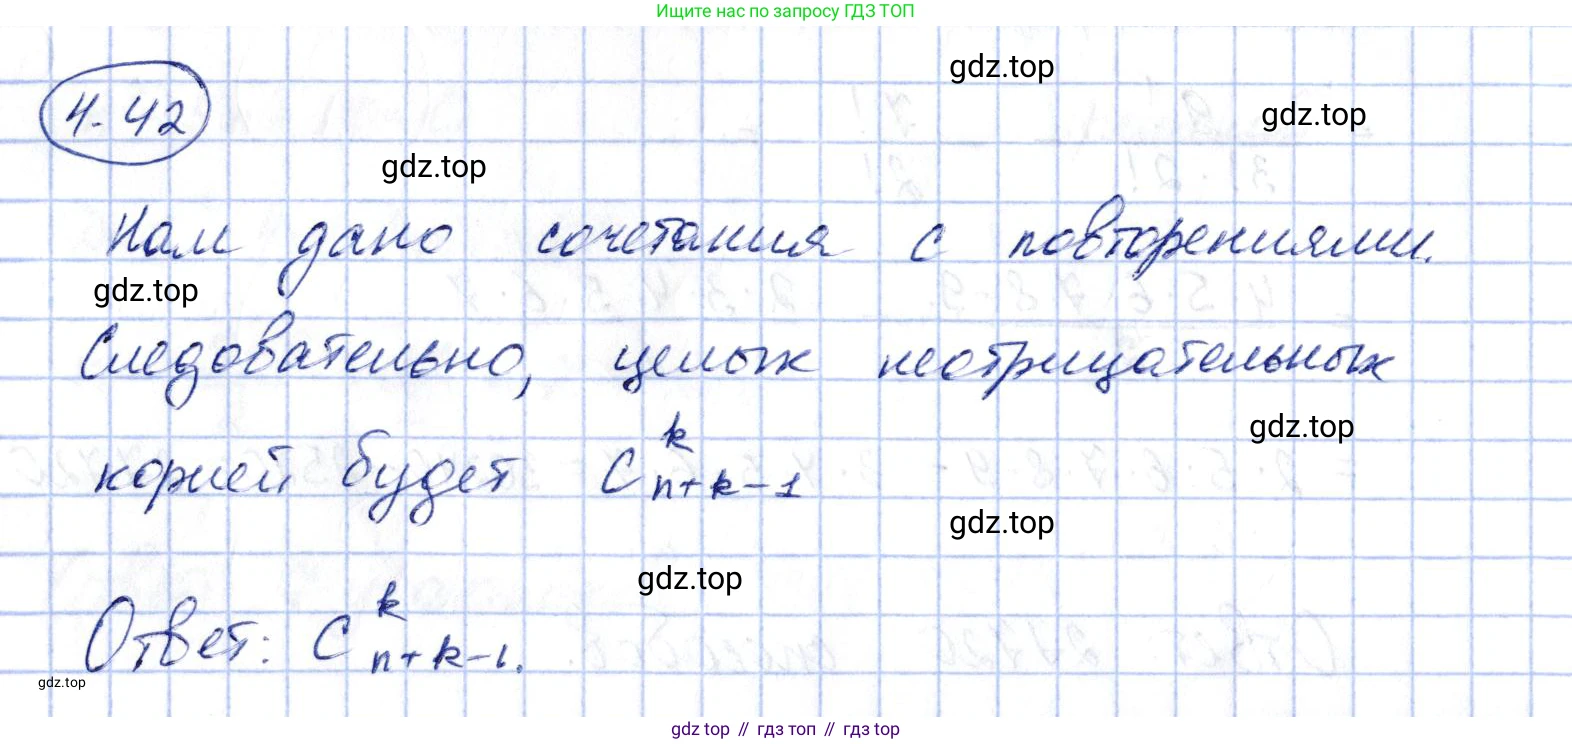 Ищите нас по запросу ГДЗ ТОП
gdz.top
4.42
gdz.top
gdz.top
Нам дано сочетания с повторениями.
gdz.top
Следовательно, целых неотрицательных
gdz.top
корней будет C^k_{n+k-1}
gdz.top
gdz.top
Ответ: C^k_{n+k-1}.
gdz.top
gdz top // гдз топ // гдз top